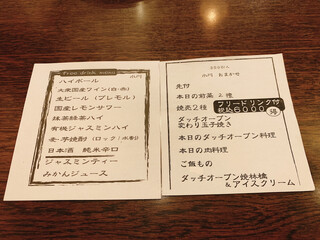 Free drink menu
ハイボール
大倉国産ワイン(白・赤)
生ビール(プレモル)
国産レモンサワー
抹茶緑茶ハイ
有機ジャスミンハイ
麦・芋焼酎(ロック/水割)
日本酒 純米辛口
ジャスミンティー
みかんジュース
おまかせ
先付
本日の前菜2種
焼売2種
フリードリンク付
税込6000
得
ダッチオーブン
変わり玉子焼き
本日のダッチオーブン料理
本日の肉料理
ご飯もの
ダッチオーブン焼林檎
&アイスクリーム